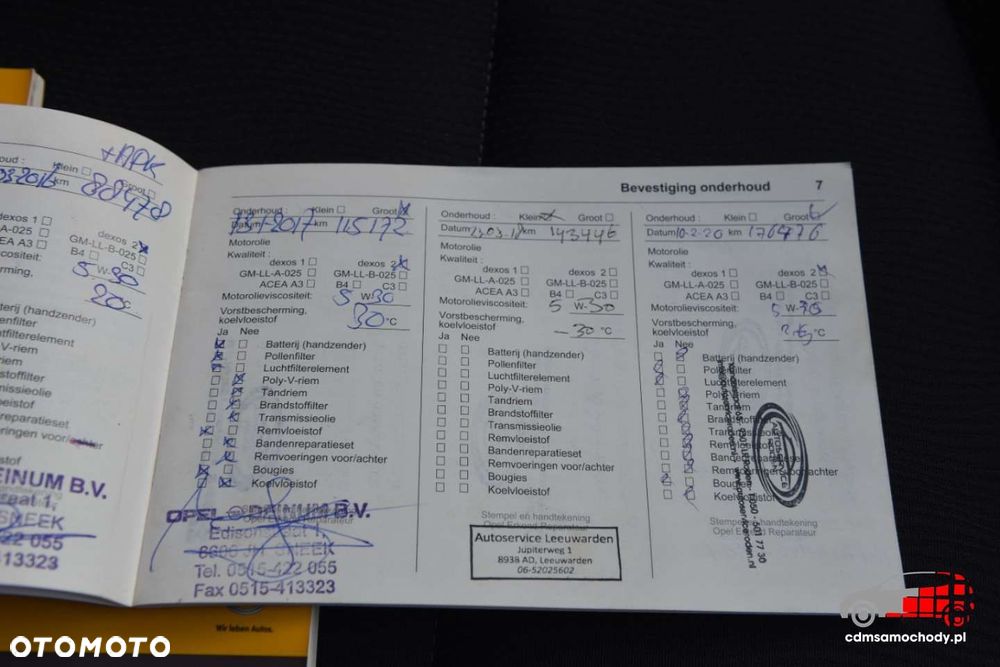 +APK
oud :
Klein
Groot
km 88478
dexos 1
A-025
ACEA A3
dexos 2
GM-LL-B-025
B4
C3
scositeit:
5 W-30
cherming,
20°C
(handzender)
enfilter
filterelement
V-riem
riem
stoffilter
missieolie
loeistof
reparatieset
eringen voor/achter
stof
EINUM B.V.
raat 1,
SMEEK
22 055
13323
Bevestiging onderhoud 7
Onderhoud : Klein Groot
Datum 13-1-2017 km 115172
Motorolie
Kwaliteit :
dexos 1 dexos 2
GM-LL-A-025 GM-LL-B-025
ACEA A3 B4 C3
Motorolieviscositeit: 5 W-30
Vorstbescherming,
koelvloeistof 30 °C
Ja Nee
Batterij (handzender)
Pollenfilter
Luchtfilterelement
Poly-V-riem
Tandriem
Brandstoffilter
Transmissieolie
Remvloeistof
Bandenreparatieset
Remvoeringen voor/achter
Bougies
Koelvloeistof
Stempel en handtekening
Opel Erkend Reparateur
OPEL
B.V.
Edisonstraat 1,
SMEEK
Tel. 0515-422 055
Fax 0515-413323
Onderhoud : Klein Groot
Datum 13-03-18 km 143446
Motorolie
Kwaliteit :
dexos 1 dexos 2
GM-LL-A-025 GM-LL-B-025
ACEA A3 B4 C3
Motorolieviscositeit: 5 W-30
Vorstbescherming,
koelvloeistof -30 °C
Ja Nee
Batterij (handzender)
Pollenfilter
Luchtfilterelement
Poly-V-riem
Tandriem
Brandstoffilter
Transmissieolie
Remvloeistof
Bandenreparatieset
Remvoeringen voor/achter
Bougies
Koelvloeistof
Stempel en handtekening
Opel Erkend Reparateur
Autoservice Leeuwarden
Jupiterweg 1
8938 AD, Leeuwarden
06-52025602
Onderhoud : Klein Groot
Datum 10-2-20 km 176476
Motorolie
Kwaliteit :
dexos 1 dexos 2
GM-LL-A-025 GM-LL-B-025
ACEA A3 B4 C3
Motorolieviscositeit: 5 W-30
Vorstbescherming,
koelvloeistof °C
Ja Nee
Batterij (handzender)
Pollenfilter
Luchtfilterelement
Poly-V-riem
Tandriem
Brandstoffilter
Transmissieolie
Remvloeistof
Bandenreparatieset
Remvoeringen voor/achter
Bougies
Koelvloeistof
Stempel en handtekening
Opel Erkend Reparateur
AUTOSERVICE
050 - 501 77 30
Wir leben Autos.
OTOMOTO
cdmsamochody.pl